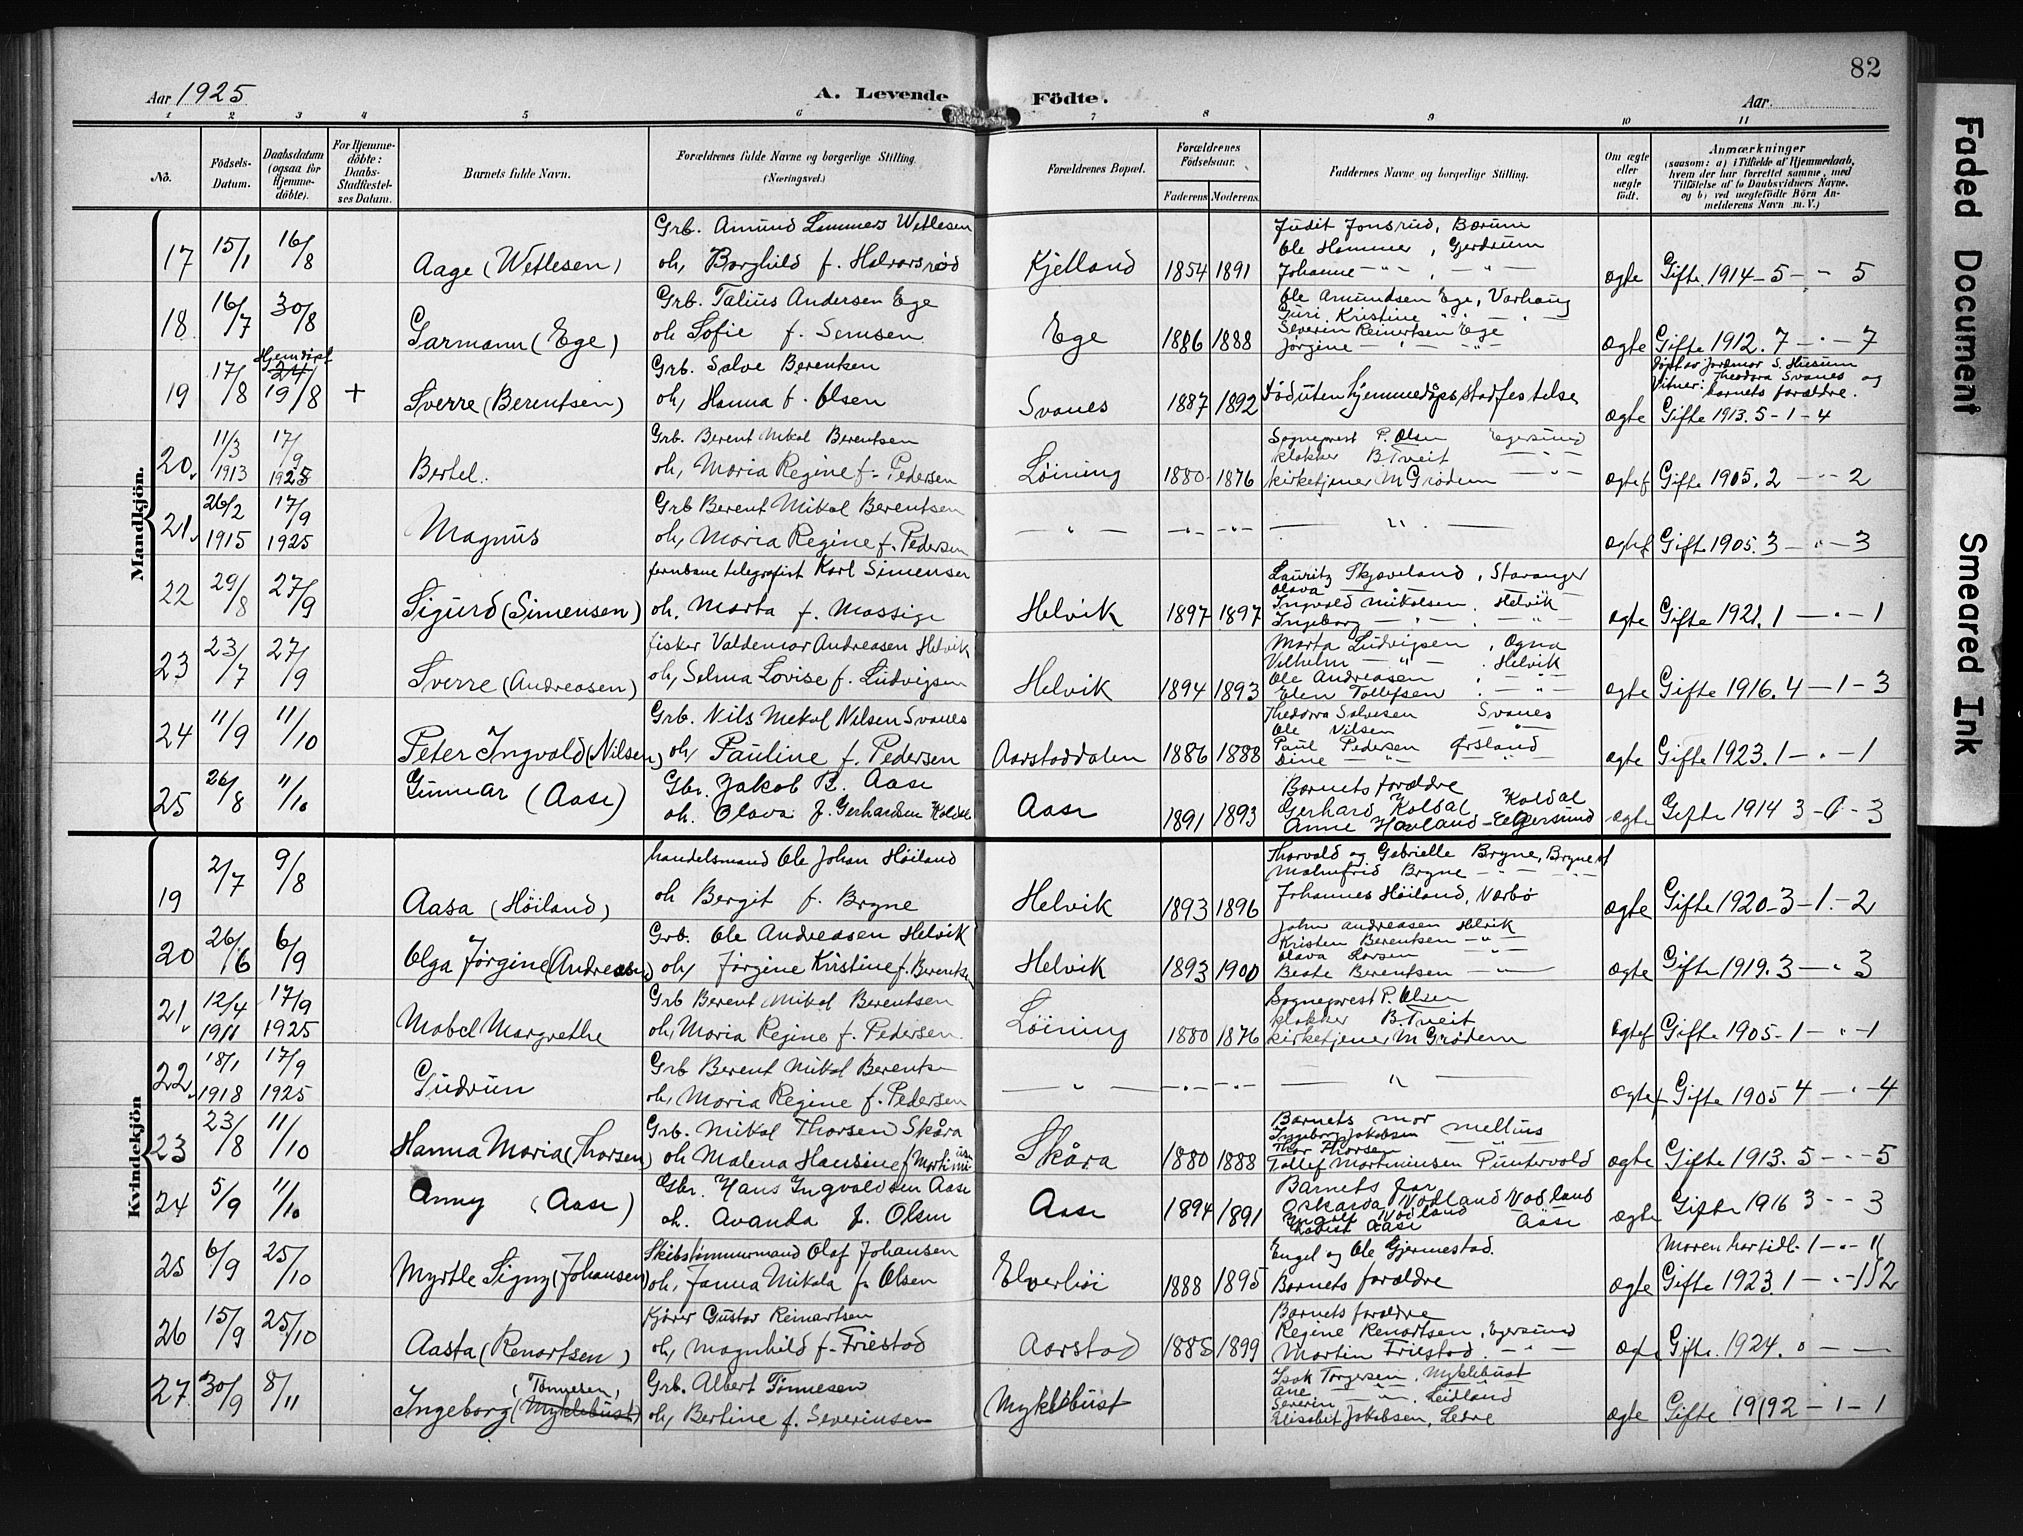 82
Aar 1925
A. Levende
Födte.
Aar
1 2 3 4 5 6 7 8 9 10 11
No.
Födsels-Datum.
Daabsdatum (ogsaa for Hjemme-döbte).
For Hjemme-döbte: Daabs-Stadfæstel-ses Datum.
Barnets fulde Navn.
Forældrenes fulde Navne og borgerlige Stilling.
(Næringsvei.)
Forældrenes Bopæl.
Forældrenes Födselsaar.
Faderens Moderens
Faddernes Navne og borgerlige Stilling.
Om ægte eller uægte födt.
Anmærkninger
(saasom: a) i Tilfælde af Hjemmedaab, hvem der har forrettet samme, med Tilföielse af to Daabsvidners Navne, og b) ved uægtefödte Börn An-melderens Navn m. V.)
Mandkjön.
17 15/1 16/8 Aage (Wetlesen) Grb. Amund Lammers Wetlesen
oh, Borghild f. Halvorsrød Kjelland 1854 1891
Judit Jonsrud, Bærum
Ole Hammer, Gjerdrum
Johanne — " — , — " —
ægte Gifte 1914 – 5 – " – 5
18 16/7 30/8 Garmann (Ege) Grb. Talius Andersen Ege
oh Sofie f. Semsen Ege 1886 1888
Ole Amundsen Ege, Varhaug
Guri Kristine " "
Severin Reinertsen Ege
Jørgine — " — " —
ægte Gifte 1912. 7 – " – 7
19 17/8 Hjemdøpt
24/
19/8 + Sverre (Berentsen) Grb. Salve Berentsen
oh, Hanna f. Olsen Svanes 1887 1892
Død uten hjemmedåps stadfestelse
Døpt av jordmor S. Husum
Vitner: Theodora Svanes og
barnets forældre.
ægte Gifte 1913. 5 – 1 – 4
20. 11/3 1913 17/9 1925 Bertel. Grb. Berent Mikal Berentsen
oh, Maria Regine f. Pedersen Løining 1880 1876
Sogneprest P. Olsen Egersund
klokker B. Tveit — " —
kirketjener M Grødem — " —
ægtef Gifte 1905. 2 – " – 2
21. 26/2 1915 17/9 1925 Magnus Grb Berent Mikal Berentsen
oh, Maria Regine f. Pedersen — " — — " — — " — — " —
ægtef Gifte 1905. 3 – " – 3
22 29/8 27/9 Sigurd (Simensen) jernbane telegrafist Karl Simensen
oh. Marta f. Mossige Helvik 1897 1897
Lauritz Skjæveland, Stavanger
Olava — — —
Ingvald Mikalsen. Helvik
Ingeborg — " — . — " —
ægte Gifte 1921. 1 – " – 1
23 23/7 27/9 Sverre (Andreasen) fisker Valdemar Andreasen Helvik
oh, Selma Lovise f. Ludvigsen Helvik 1894 1893
Marta Ludvigsen, Ogna
Vilhelm — " — . Helvik
Ole Andreasen
Elen Tollefsen . — " —
ægte Gifte 1916. 4 – 1 – 3
24 11/9 11/10 Peter Ingvald (Nilsen) Grb. Nils Mekal Nilsen Svanes
oh, Pauline f. Pedersen Aarstaddalen 1886 1888
Theodora Salvesen Svanes
Ole Nilsen — " —
Paul Pedersen Ørsland
Dine — " — — " —
ægte Gifte 1923. 1 – " – 1
25 26/8 11/10 Gunnar (Aase) Gbr. Jakob B. Aase
oh. Olava f. Gerhardsen Koldal Aase 1891 1893
Barnets forældre
Gerhard Koldal Koldal
Anne Havland – Egersund
ægte Gifte 1914 3 – 0 – 3
Kvindekjön
19 2/7 9/8 Aasa (Höiland) handelsmand Ole Johan Höiland
oh Bergit f. Bryne Helvik 1893 1896
Thorvald og Gabrielle Bryne, Bryne st
Malmfrid Bryne — " — — " —
Johannes Höiland, Nærbø
ægte Gifte 1920 – 3 – 1 – 2
20 26/6 6/9 Olga Jörgine (Andreasen) Grb. Ole Andreasen Helvik
oh, Jörgine Kristine f. Berentsen Helvik 1893 1900
John Andreasen Helvik
Kristen Berentsen — " —
Olava Larsen — " —
Beate Berentsen — " —
ægte Gifte 1919. 3 – " 3
21. 12/4 1911 17/9 1925 Mabel Margrethe Grb Berent Mikal Berentsen
oh, Maria Regine f. Pedersen. Löining 1880 1876
Sogneprest P. Olsen
klokker B. Tveit
kirketjener M Grødem
ægtef Gifte 1905 – 1 – " – 1
22. 18/1 1918 17/9 1925 Gudrun Grb Berent Mikal Berentsen
oh, Maria Regine f. Pedersen — " — — " — — " — — " —
ægtef Gifte 1905 4 – " – 4
23 23/8 11/10 Hanna Maria (Thorsen) Grb. Mikal Thorsen Skåra
oh Malena Hansine f Mortiminsen Skåra 1880 1888
Barnets mor
Ingeborg Jakobsen Mellius
Thor Thorsen
Tollef Mortiminsen Puntervold
ægte Gifte 1913. 5 – " – 5
24 5/9 11/10 Anny (Aase) Gbr. Hans Ingvaldsen Aase
oh. Avanda f. Olsen Aase 1894 1891
Barnets far
Oskarda Vodland Vodland
Vodland
Aase Aase
ægte Gifte 1916 3 – – 3
25 6/9 25/10 Myrtle Signy (Johansen) Skibstømmermand Olaf Johansen
oh, Janna Mikala f. Olsen Elverhöi 1888 1895
Engel og Ole Gjermestad.
Barnets forældre
Moren har tidl. 1 – " – 1
ægte Gifte 1923. 1 – " – 1 } 2
26 15/9 25/10 Aasta (Renartsen) Kjører Gustav Reinartsen
oh, Magnhild f. Friestad Aarstad 1885 1899
Barnets forældre
Regine Renartsen, Egersund
Martin Friestad. — " —
ægte Gifte. 1924. 0 — —
27 30/9 8/11 Ingeborg (Myklebust)
(Tønnesen)
Grb. Albert Tønnesen
oh, Bertine f. Severinsen Myklebust
Isak Torgersen, Myklebust
Ane — " —
Severin — " — . Leidland
Elisabet Jakobsen, Ledre
ægte Gifte 1919 2 – 1 – 1
Faded Document
Smeared Ink